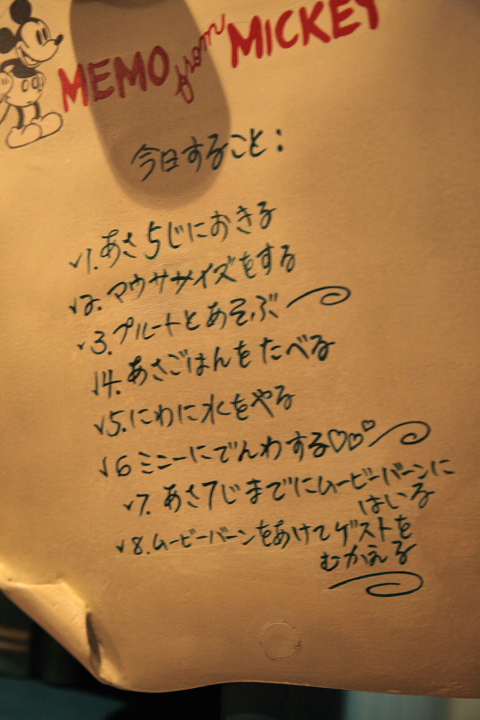 MEMO from MICKEY
今日すること:
✓1. あさ5じにおきる
✓2. マウササイズをする
✓3. プルートとあそぶ
✓4. あさごはんをたべる
✓5. にわに水をやる
✓6 ミニーにでんわする♡♡♡
✓7. あさ7じまでにムービーバーンに
はいる
✓8. ムービーバーンをあけてゲストを
むかえる